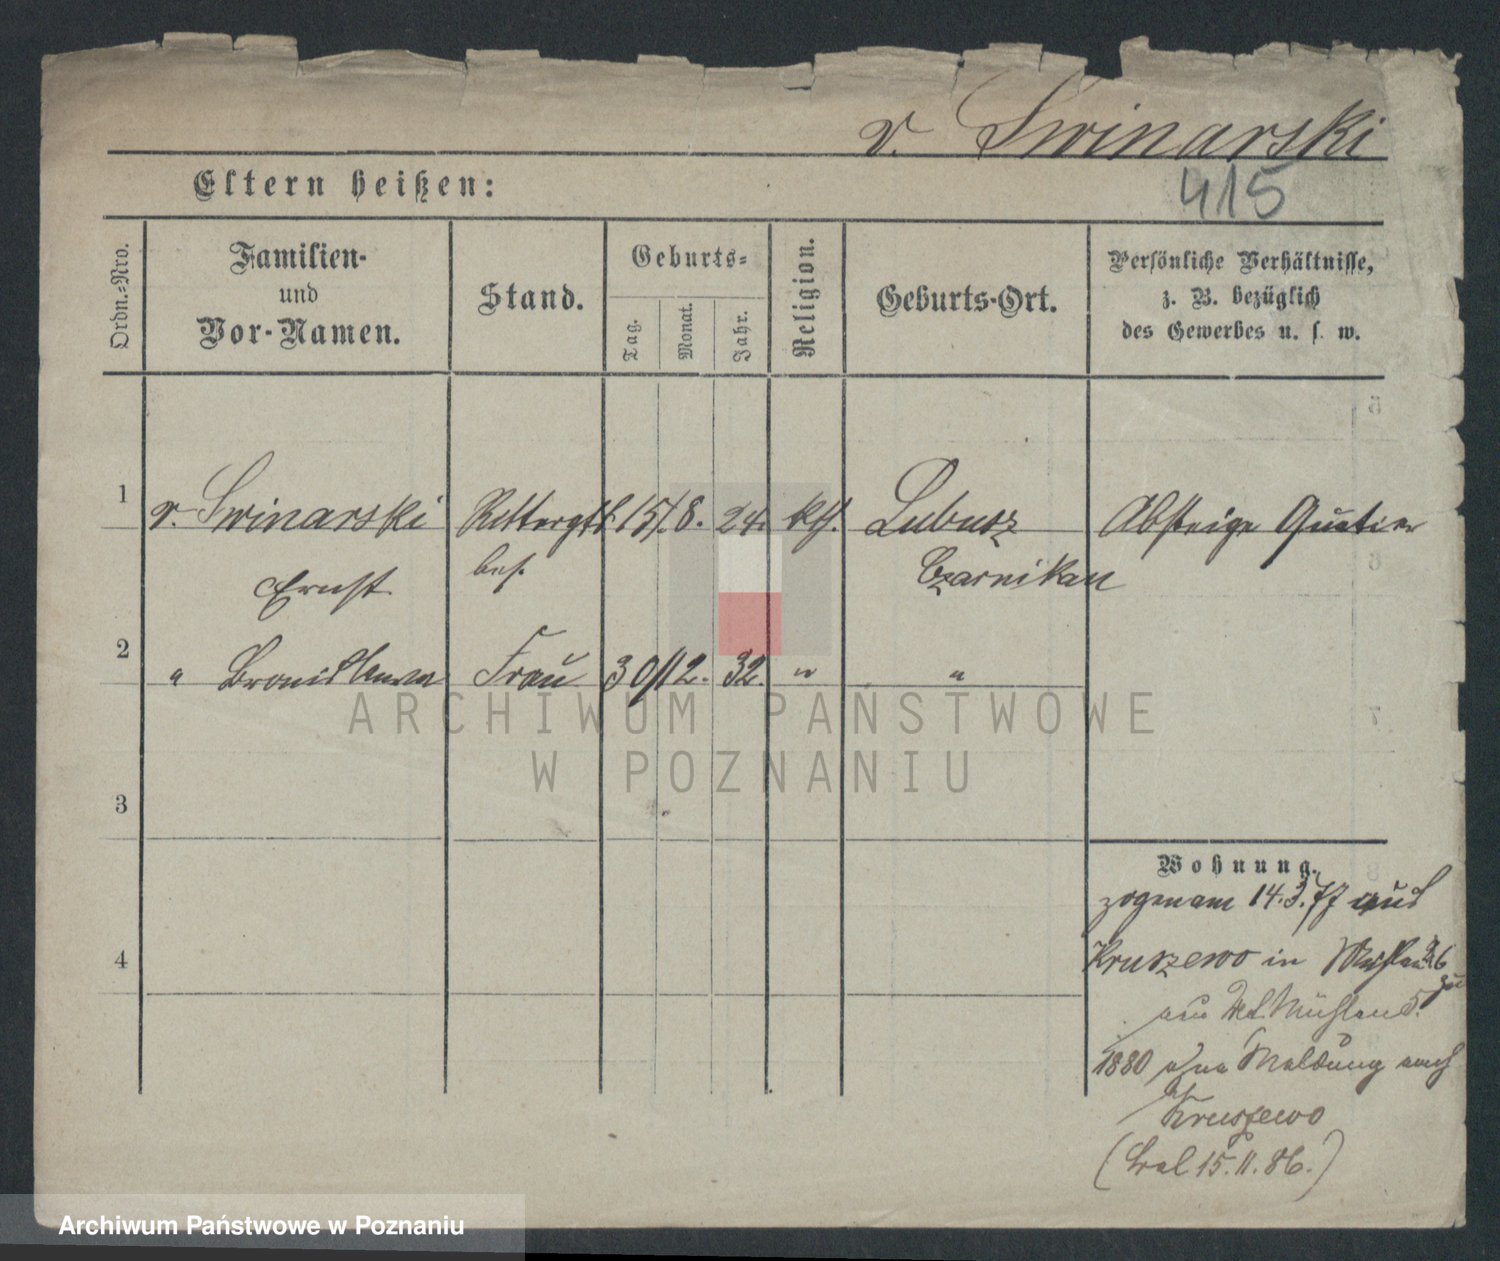 v. Swinarski
Eltern heißen:
415
Ordn.-Nro.
Familien-
und
Vor-Namen.
Stand.
Geburts-
Tag.
Monat.
Jahr.
Religion.
Geburts-Ort.
Persönliche Verhältnisse,
z. B. bezüglich
des Gewerbes u. s. w.
1 v. Swinarski Rittergts. 15/. 8. 24. kth. Lubusz Absteige Quatier
Ernst bes. Czarnikau
2 " Bronislawa Frau 30/12. 32. " "
3
4
Wohnung.
zogen am 14.3.77 aus
Kruszewo in Mühlen 26
Mühlen 5.
1880 ohne Meldung nach
Kruszewo
15.11.86.)
ARCHIWUM PAŃSTWOWE
W POZNANIU
Archiwum Państwowe w Poznaniu